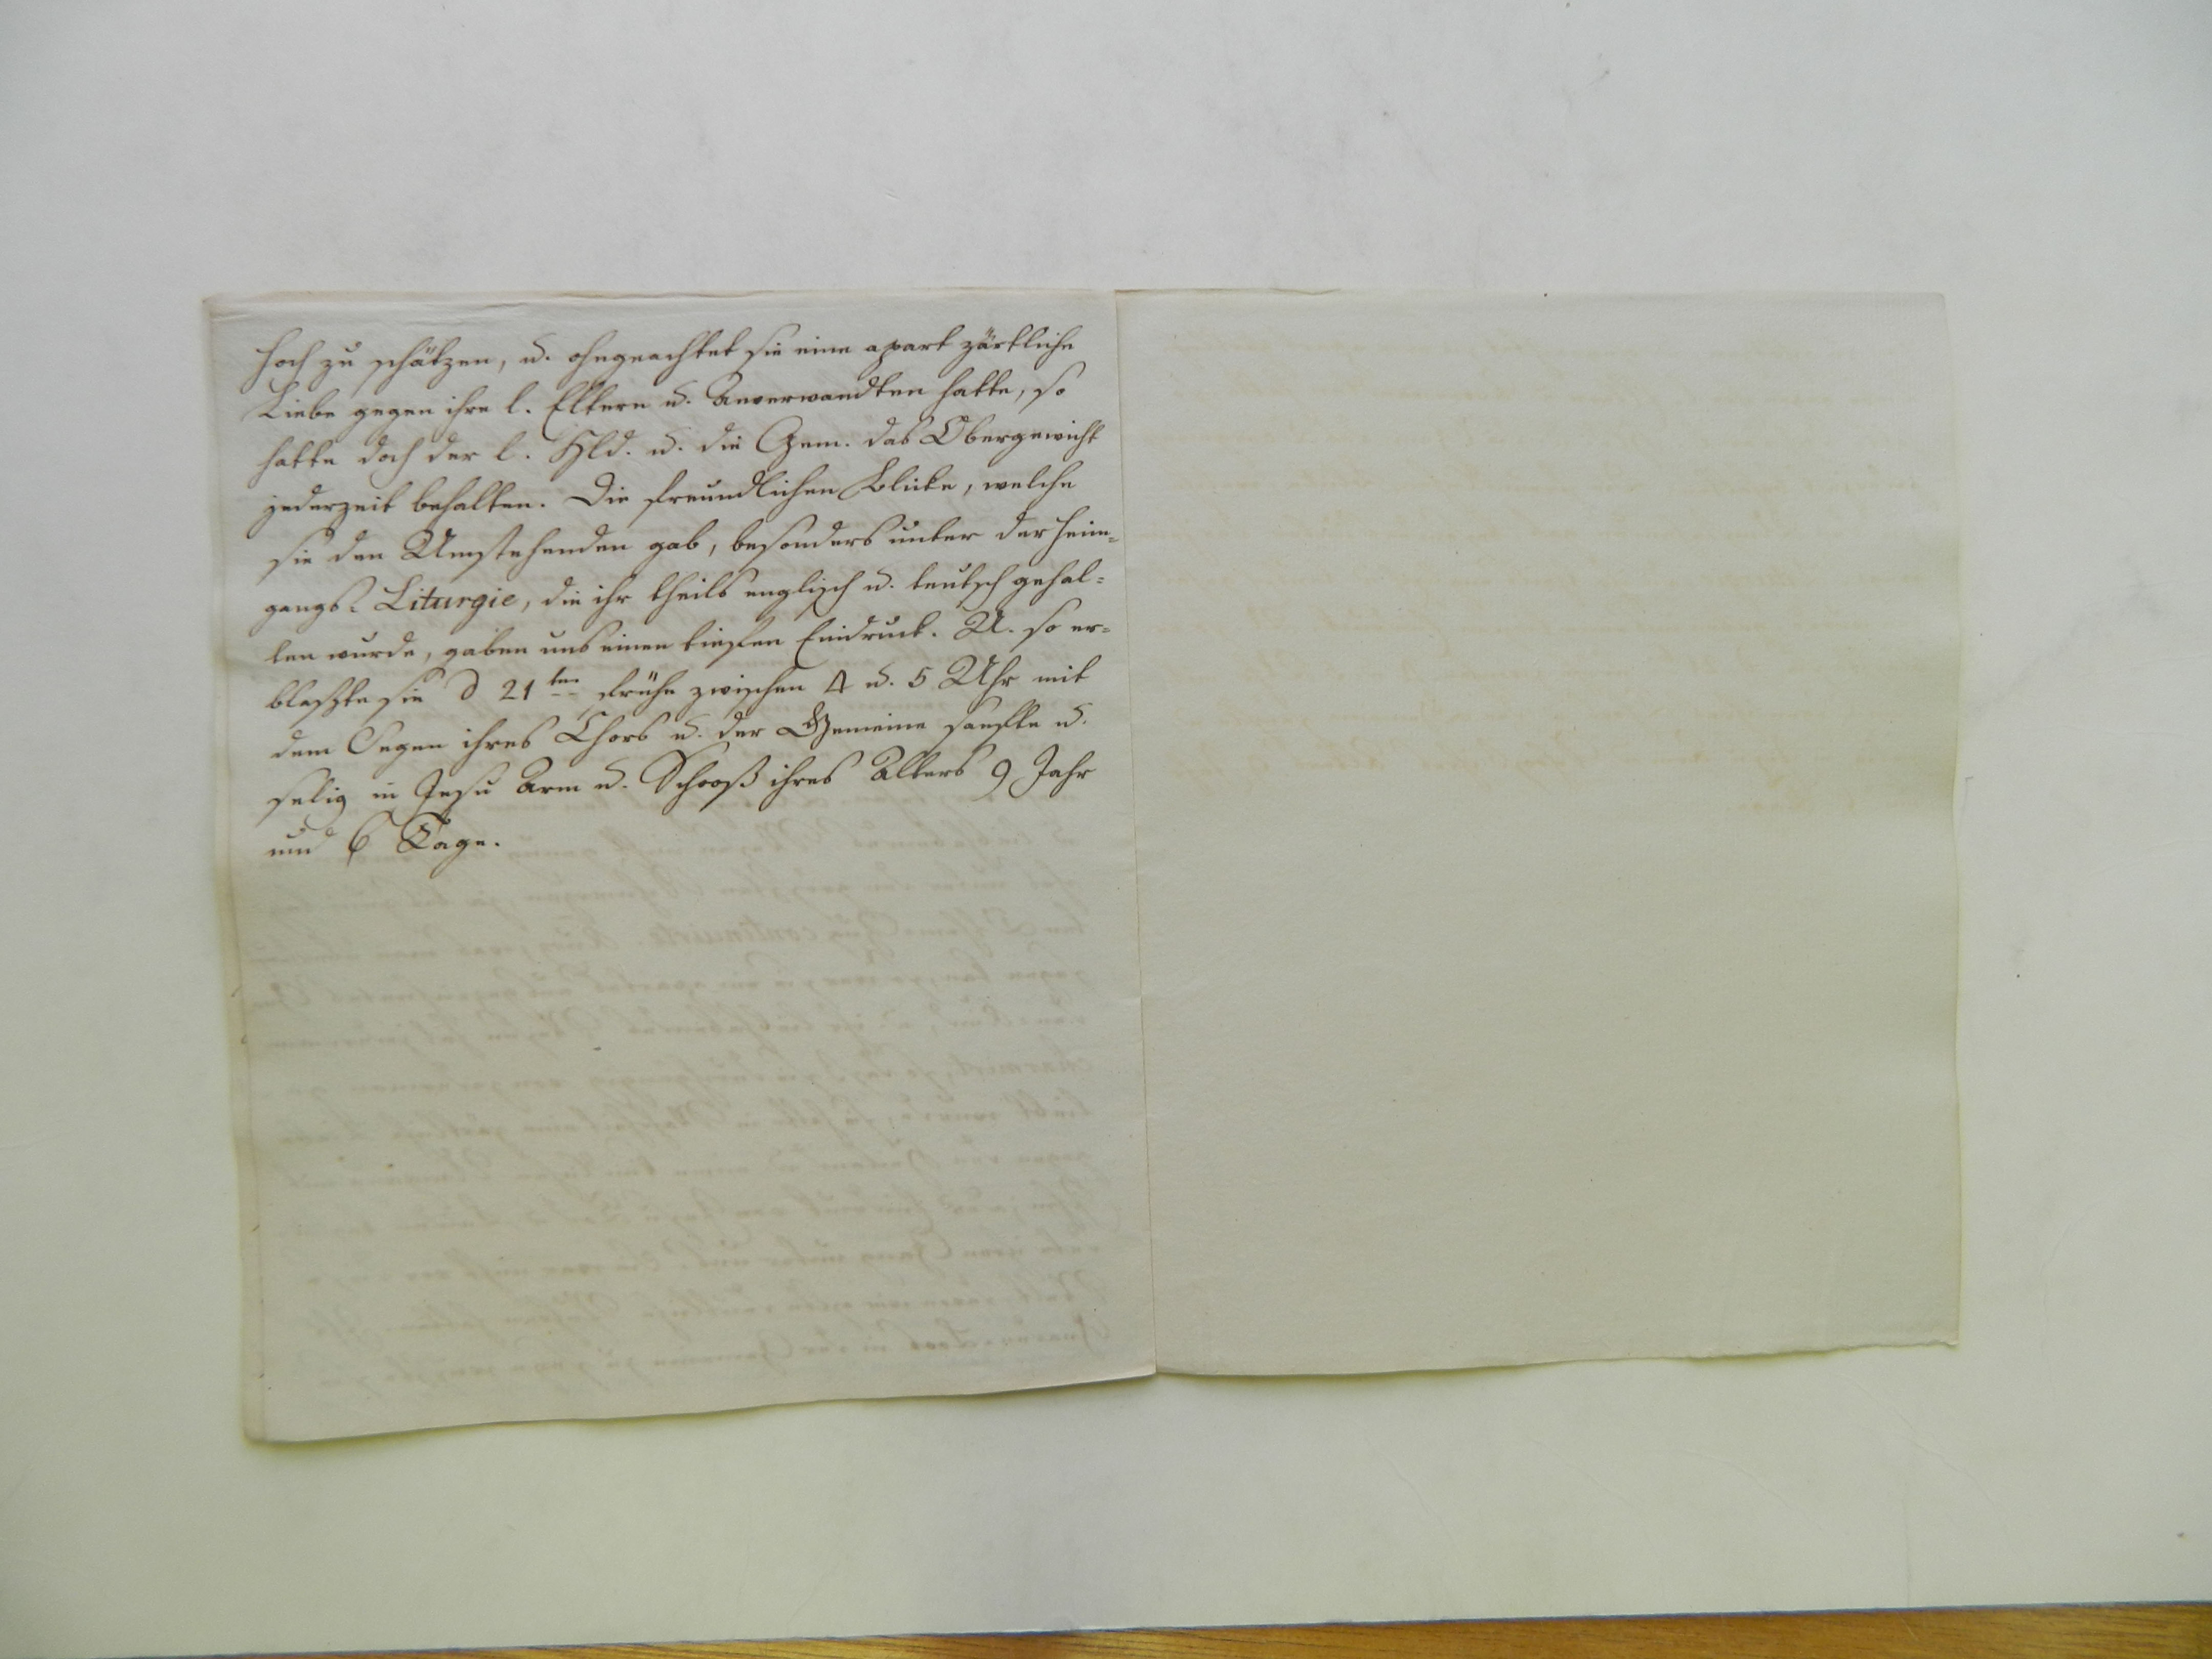 hoch zu schätzen, u. ohngeachtet sie eine apart zärtliche
Liebe gegen ihre l. Eltern u. Anverwandten hatte, so
hatte doch der l. Hld. u. die Gem. das Obergewicht
jederzeit behalten. Die freundlichen Blicke, welche
sie den Umstehenden gab, besonders unter der Heim-
gangs-Liturgie, die ihr theils englisch u. teutsch gehal-
ten wurde, gaben uns einen tiefen Eindruck. U. so er-
blaßte sie d 21ten frühe zwischen 4 u. 5 Uhr mit
dem Segen ihres Chors u. der Gemeine sanfte u.
selig in Jesu Arm u. Schooß ihres Alters 9 Jahr
und 6 Tage.